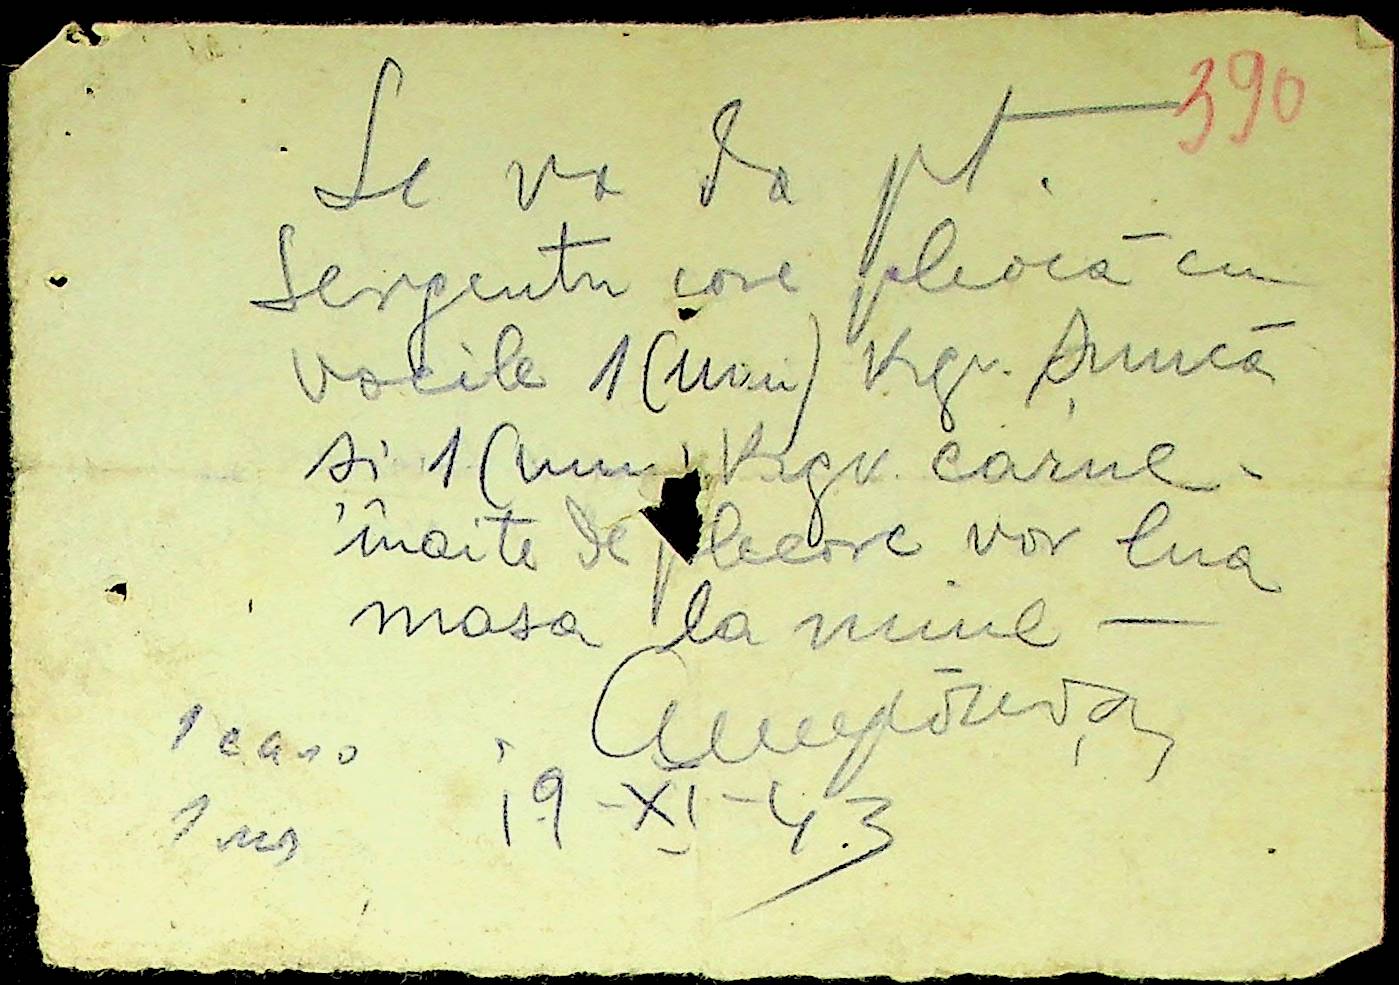 390
Se va da pt.
Sergentu care pleacă cu
vacile 1 (unu) Kgr. șuncă
si 1 (unu) Kgr. carne -
înaite de plecare vor lua
masa la mine —
1
19-XI-43
1